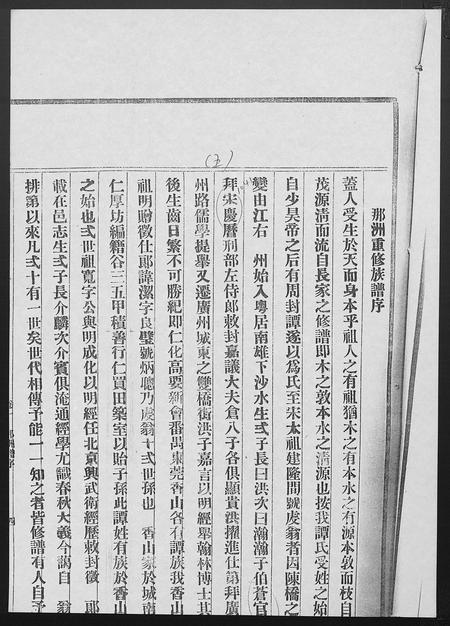 那洲重修族譜序
蓋人受生於天而身本乎祖人之有祖猶木之有本水之有源本敦而枝自
茂源清而流自長家之修譜即木之敦本水之清源也按我譚氏受姓之始
自少昊帝之后有周封譚遂以為氏至宋太祖建隆間號虔翁者因陳橋之
變由江右 州始入粵居南雄下沙水生弍子長曰洪次曰瀚瀚子伯蒼官
拜宋慶曆刑部左侍郎敕封嘉議大夫倉八子各俱顯貴洪擢進仕第拜廣
州路儒學提舉又遷廣州城東之雙橋街洪子嘉言以明經舉翰林博士其
後生齒日繁不可勝紀即仁化高要新會番禺東莞香山各有譚族我香山
祖明贈徵仕郎諱潔字良璧號炳聰乃虔翁十弍世孫也 香山家於城南
仁厚坊編籍谷三五甲積善行仁買田築室以貽子孫此譚姓有族於香山
之始也弍世祖寬字公與明成化以明經任北京興武衛經歷敕封徵 郎
載在邑志生弍子長介麟次介賓俱淹通經學尤識春秋大義今謁自 翁
排第以來凡弍十有一世矣世代相傳予能一一知之者皆修譜有人自予
(五)